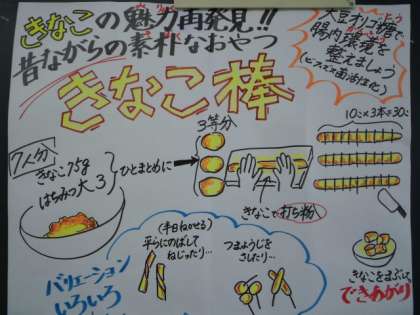 きなこの魅力再発見!!
昔ながらの素朴なおやつ
大豆オリゴ糖で
腸内環境を
整えましょう
(ビフィズス菌活性化)
きなこ棒
7人分
きなこ75g
はちみつ大3
ひとまとめに
3等分
きなこで打ち粉
10こ×3本=30こ
きなこをまぶして
できあがり
バリエーション
いろいろ
(半日ねかせる)
平らにのばして
ねじったり…
つまようじを
さしたり…